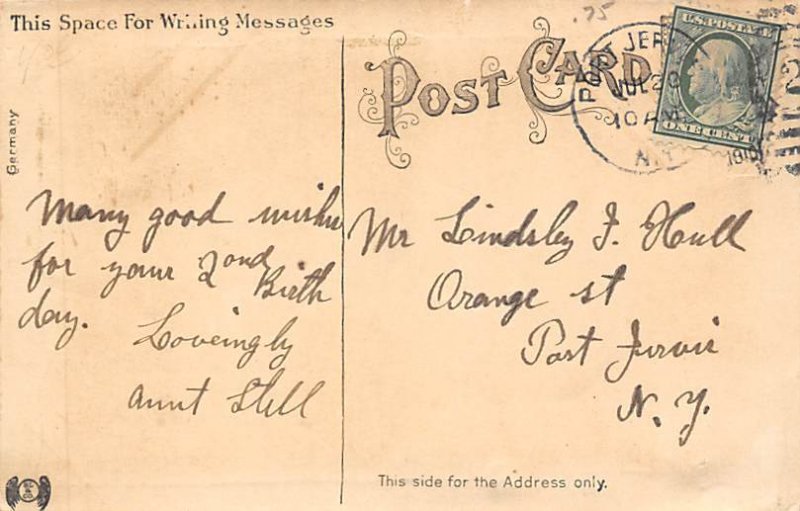 This Space For Writing Messages
.75
Germany
POST CARD
PORT JER
JUL 29
10 AM
N.Y.
1910
U.S. POSTAGE
ONE CENT
Many good wishes
for your 2ond
Birth
day.
Loveingly
aunt Stell
Mr Lindsley F. Hull
Orange st
Port Jervis
N.Y.
This side for the Address only.